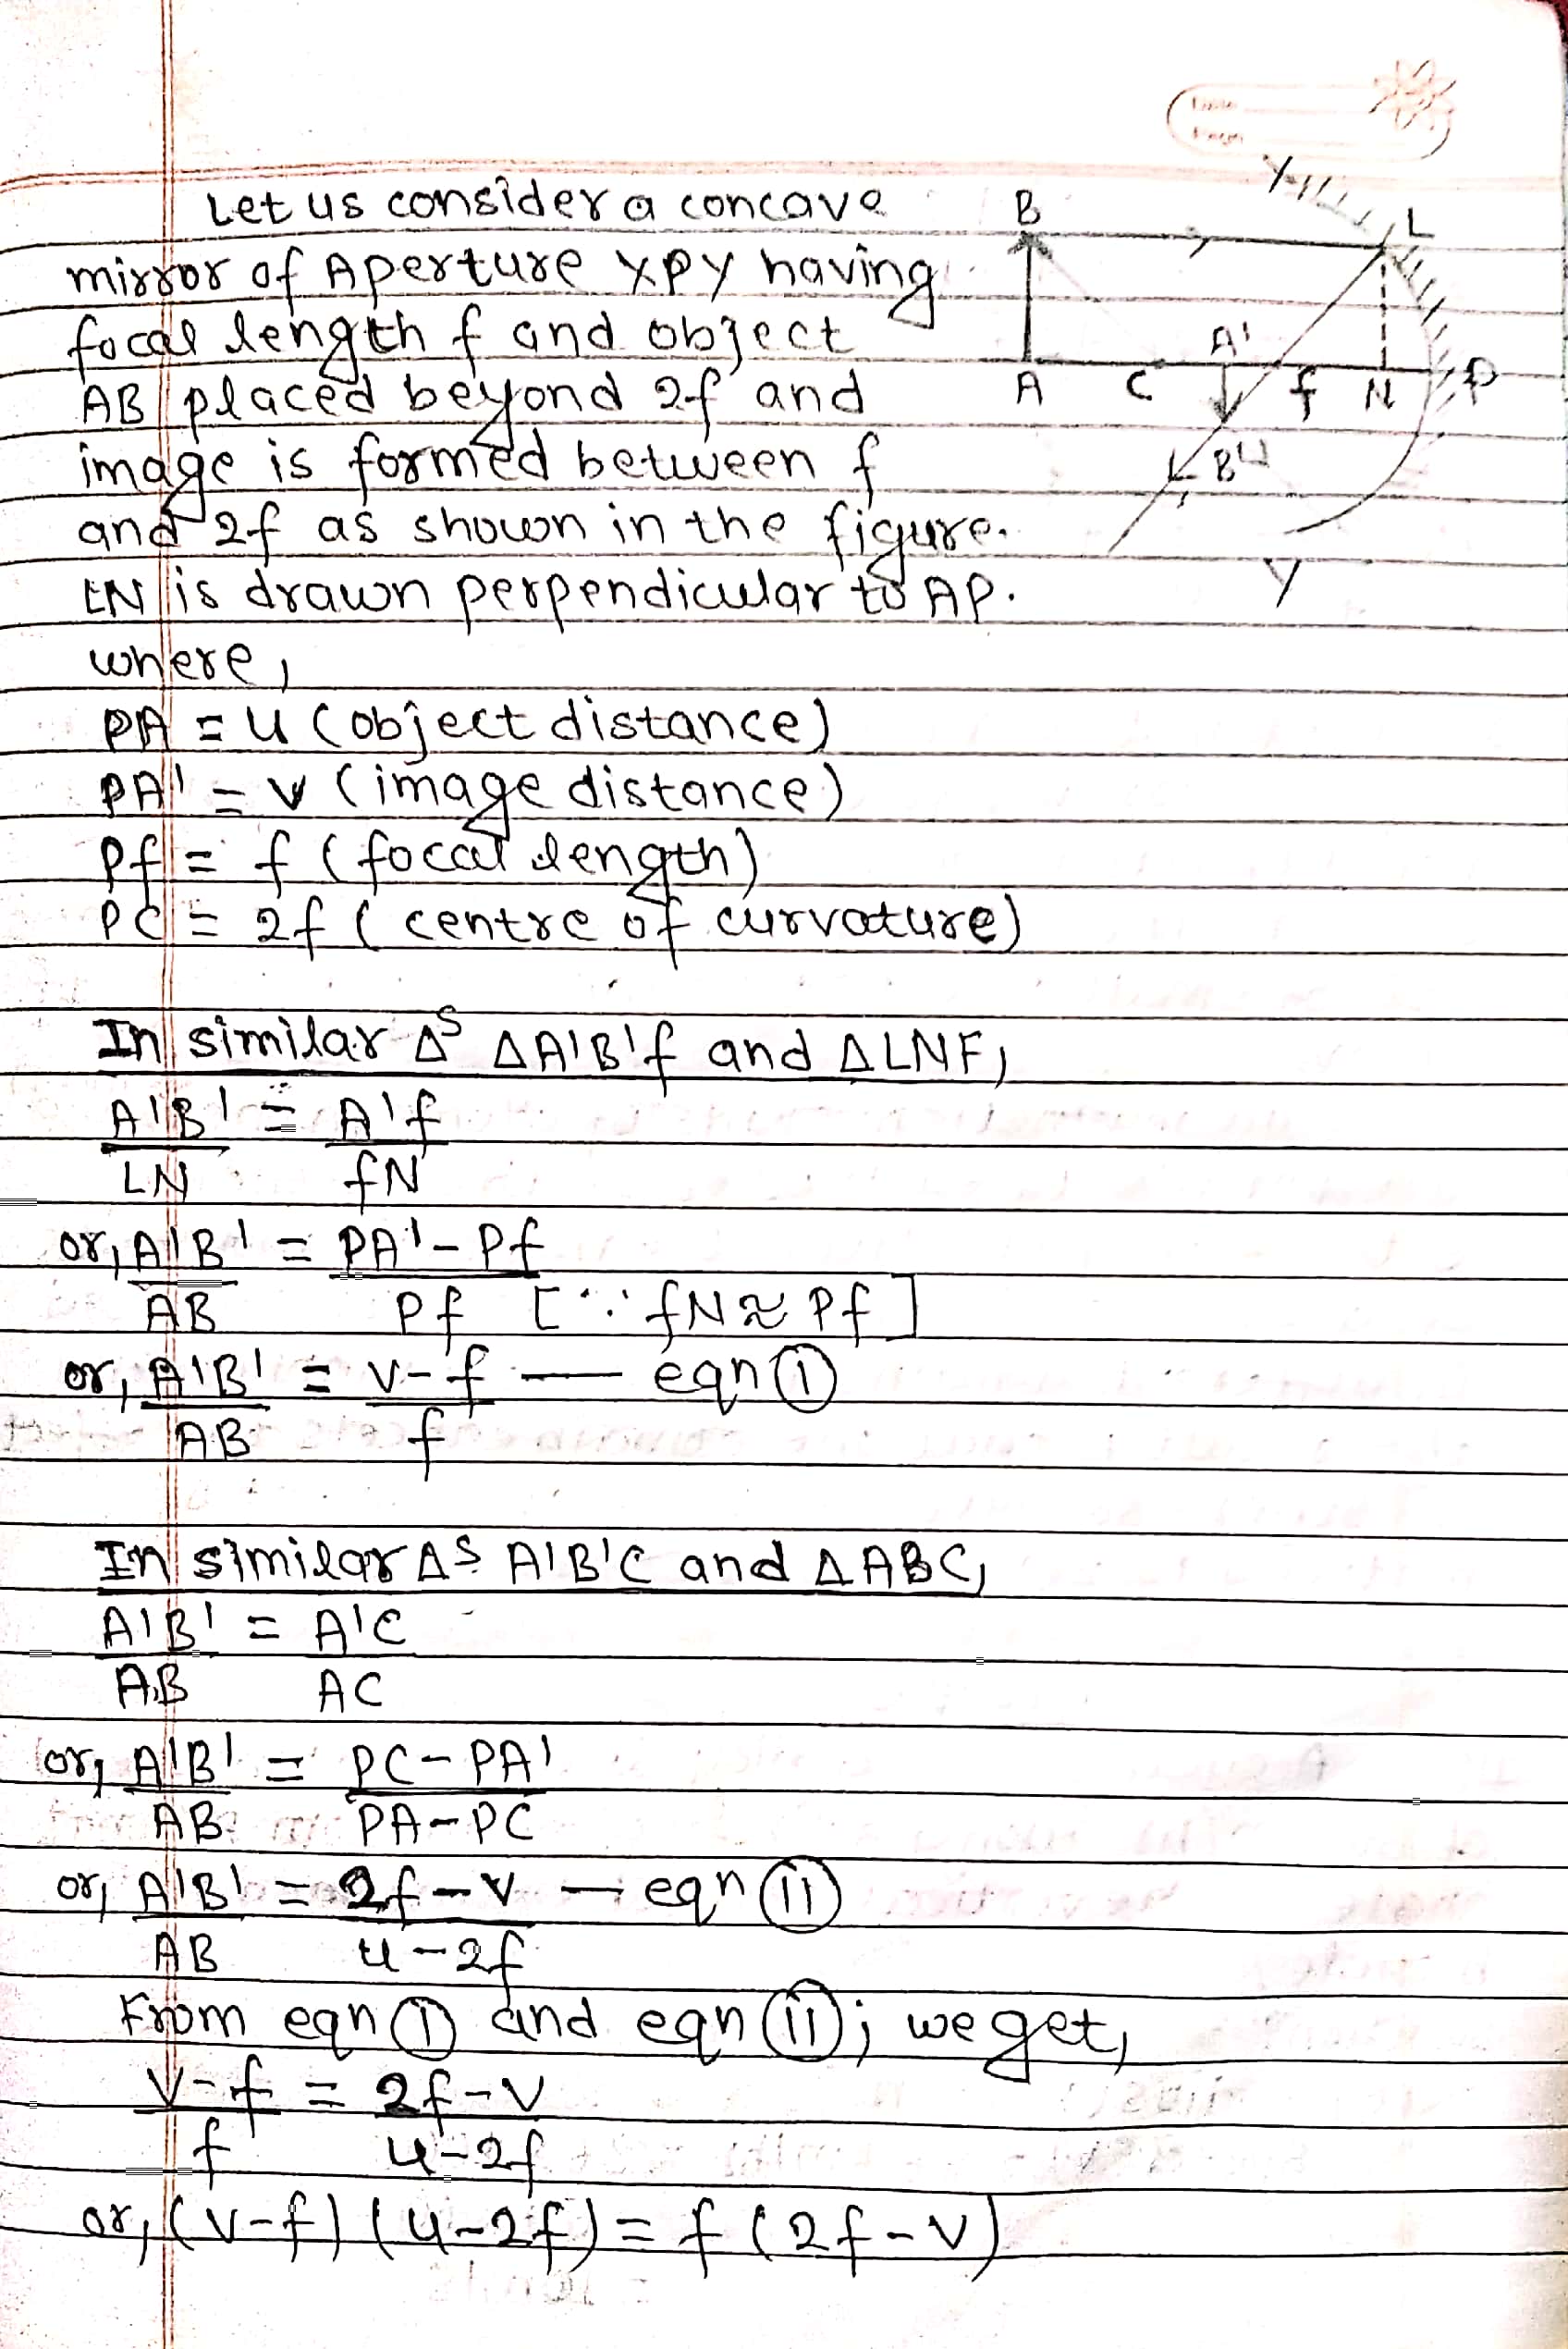 Let us consider a concave
mirror of Aperture XPY having
focal length f and object
AB placed beyond 2f and
image is formed between f
and 2f as shown in the figure.
LN is drawn perpendicular to AP.
where,
PA = u (object distance)
PA' = v (image distance)
Pf = f (focal length)
PC = 2f (centre of curvature)
B
L
A'
A C f N P
B'
Y
In similar Δs ΔA'B'f and ΔLNF,
A'B' = A'f
LN fN
or, A'B' = PA' - Pf
AB Pf [∵ fN ≈ Pf]
or, A'B' = v - f — eqn (i)
AB f
In similar Δs A'B'C and ΔABC,
A'B' = A'C
AB AC
or, A'B' = PC - PA'
AB PA - PC
or, A'B' = 2f - v — eqn (ii)
AB u - 2f
From eqn (i) and eqn (ii); we get,
v - f = 2f - v
f u - 2f
or, (v - f) (u - 2f) = f (2f - v)